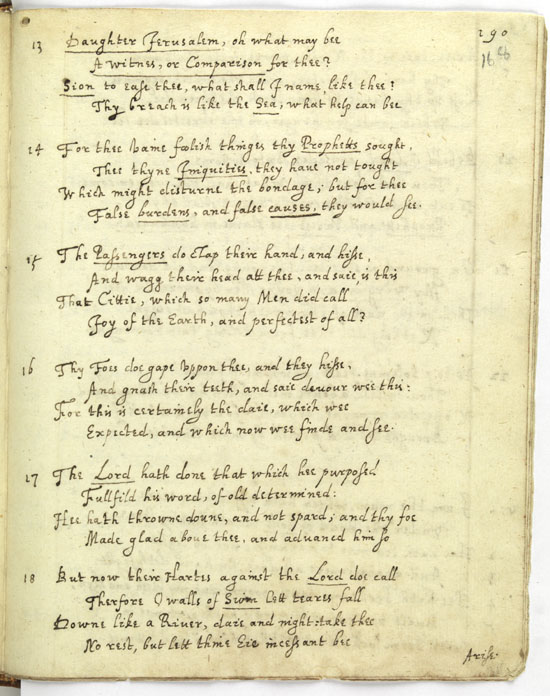 190
168
13 Daughter Jerusalem, oh what may bee
A witnes, or Comparison for thee?
Sion to ease thee, what shall I name like thee?
Thy breach is like the Sea, what help can bee
14 For thee vaine foolish thinges thy Prophetts sought,
Thee thyne Iniquities, they have not tought
Which might disturne the bondage; but for thee
False burdens, and false causes, they would see.
15 The Passengers do clap their hand, and hisse,
And wagg their head att thee, and saie, is this
That Cittie, which so many Men did call
Joy of the Earth, and perfectest of all?
16 Thy Foes doe gape vppon thee, and they hisse,
And gnash their teeth, and saie devour wee this:
For this is certainely the daie, which wee
Expected, and which now wee finde and see.
17 The Lord hath done that which hee purposed
Fullfild his word, of old determined:
Hee hath throwne doune, and not spard; and thy foe
Made glad aboue thee, and advaned him so
18 But now their Hartes against the Lord doe call
Therfore O walls of Sion lett teares fall
Downe like a River, daie and night: take thee
No rest, but lett thine Eie incessant bee
Arise.